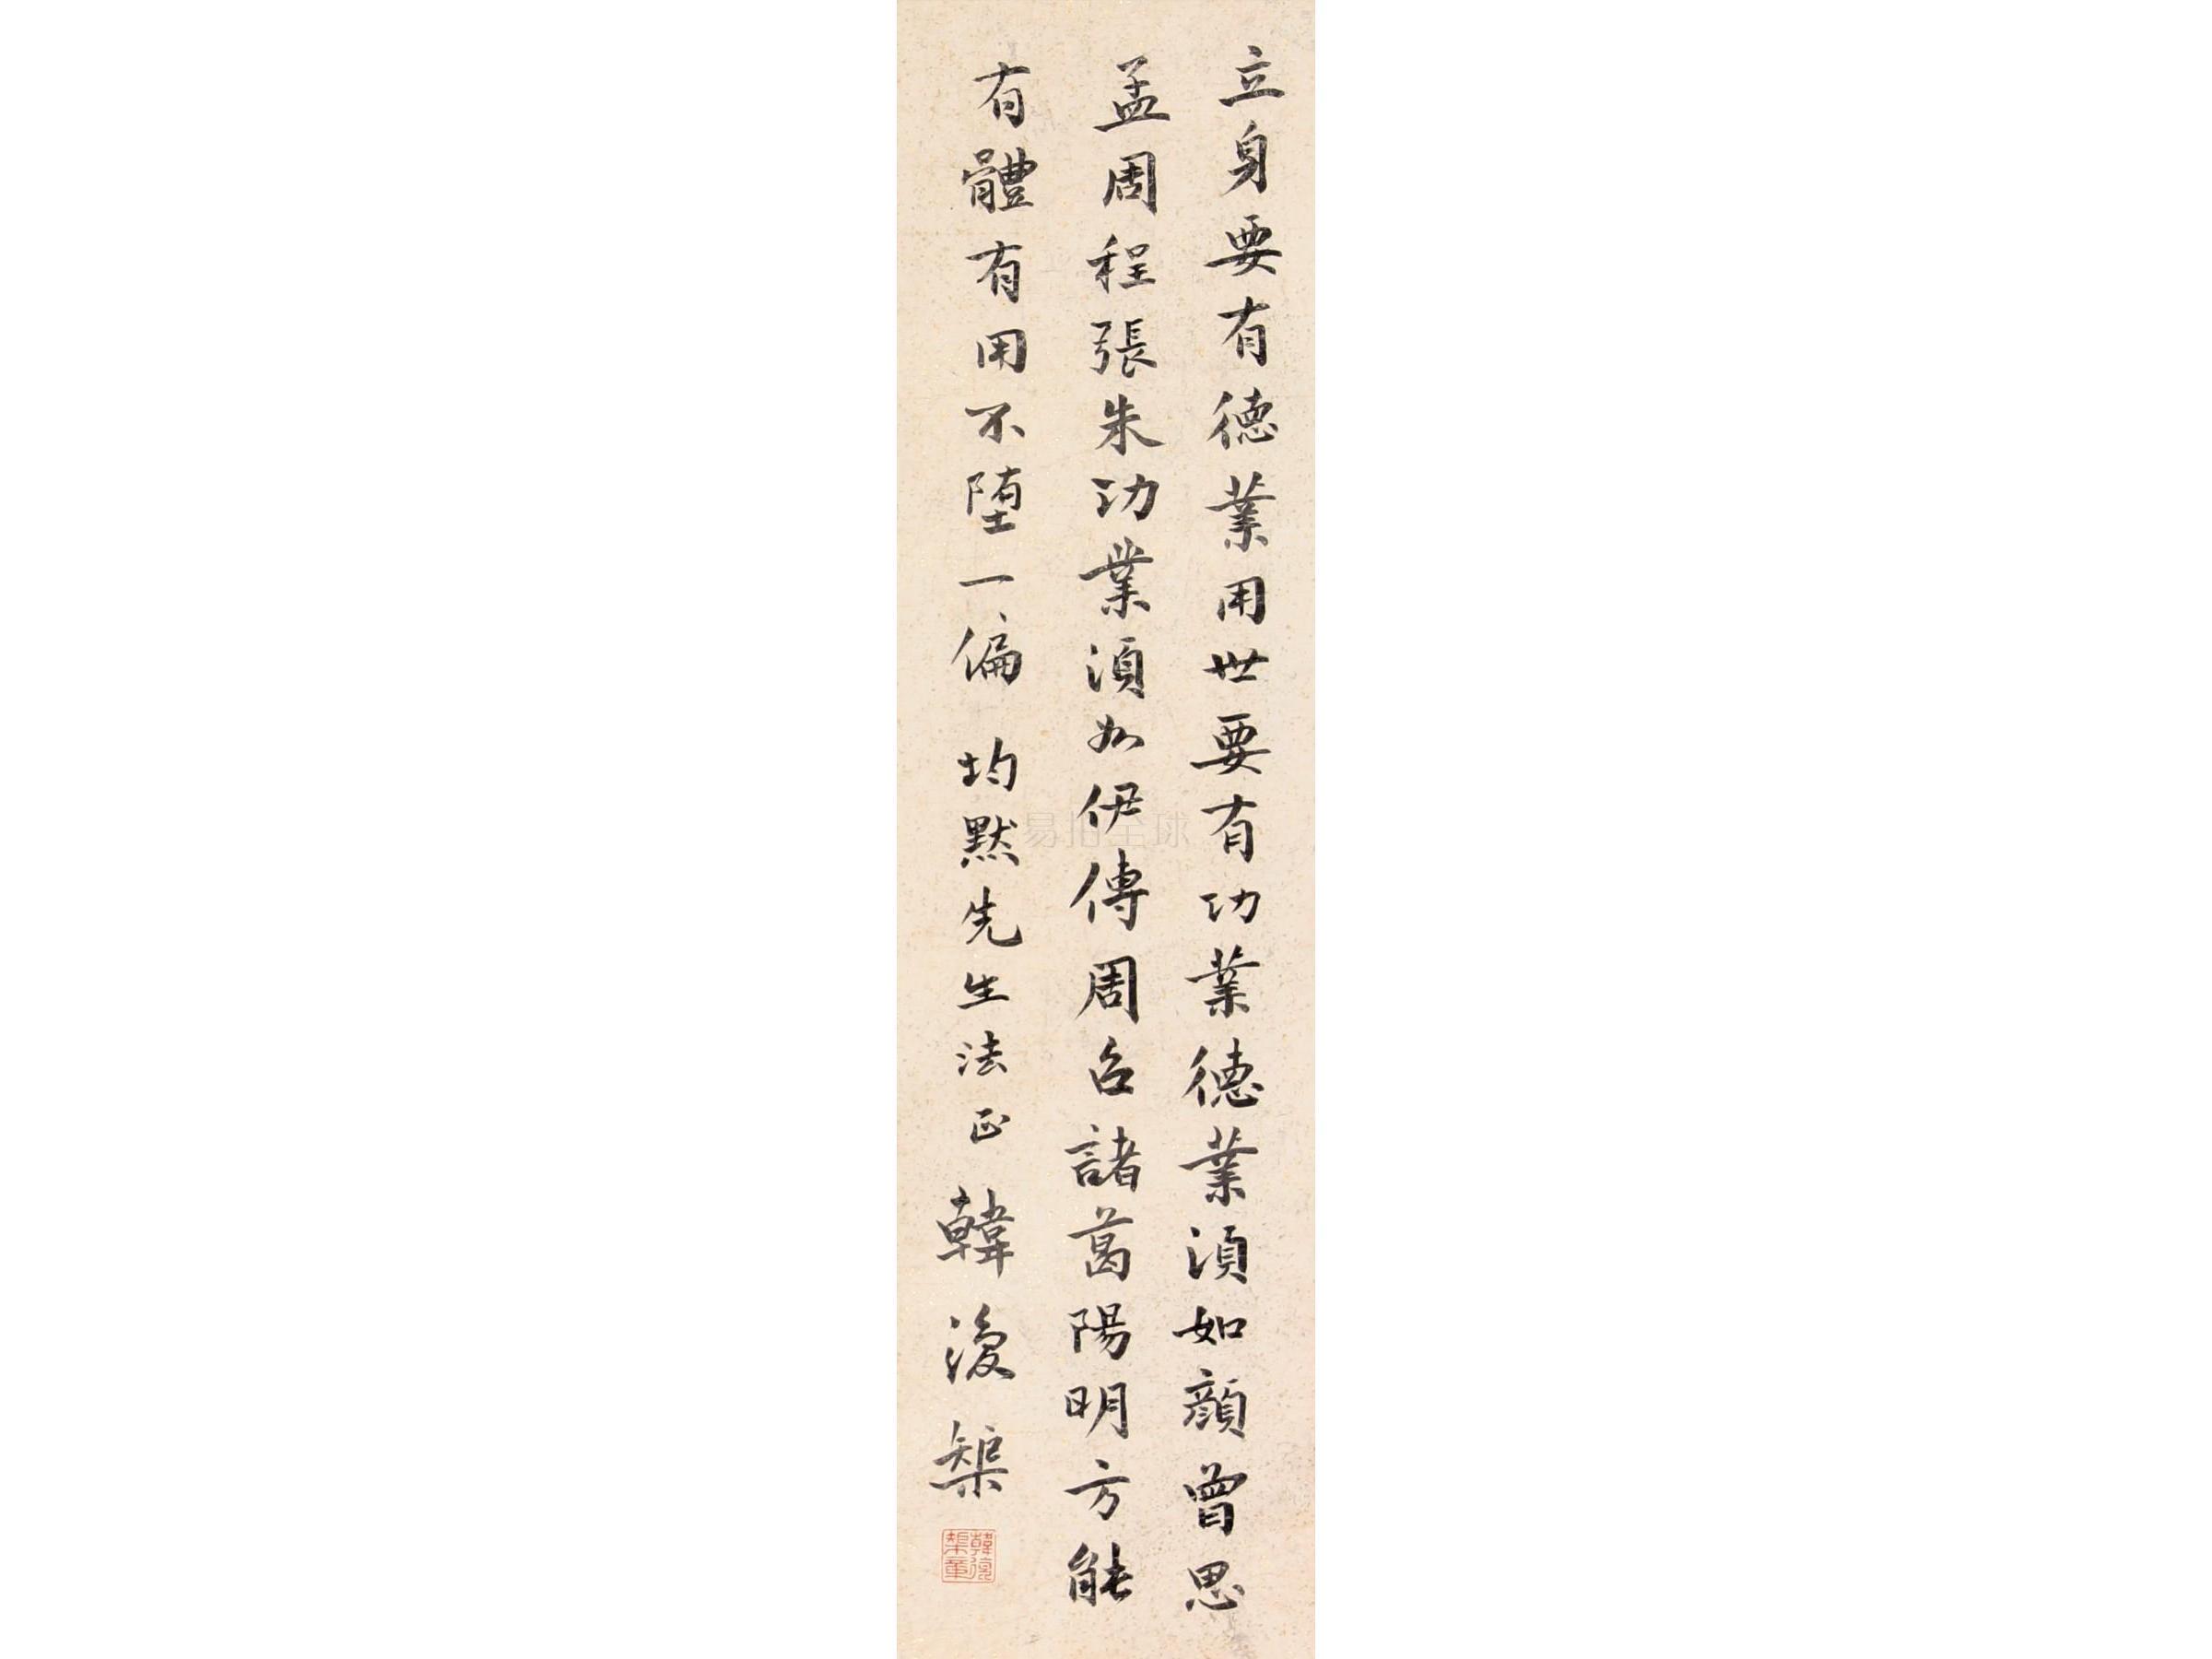 立身要有德業用世要有功業德業須如顔曾思
孟周程張朱功業須如伊傅周召諸葛陽明方能
有體有用不墮一偏 均默先生法正 韓復榘
韓復
榘章
易拍全球